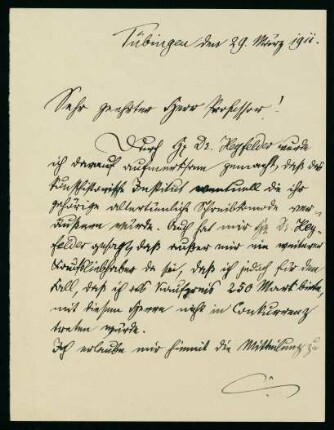 Tübingen den 29. März 1911.
Sehr geehrter Herr Professor!
Durch H. Dr. Heyfelder wurde
ich darauf aufmerksam gemacht, daß das
Kunsthistorische Institut eventuell die ihr
gehörige altertümliche Schreibkommode ver-
äußern würde. Auch hat mir H. Dr. Hey-
felder gesagt, daß außer mir ein weiterer
Kaufliebhaber da sei, daß ich jedoch für den
Fall, daß ich als Kaufpreis 250 Mark biete,
mit diesem Herrn nicht in Concurrenz
treten würde.
Ich erlaube mir hiemit die Mitteilung zu